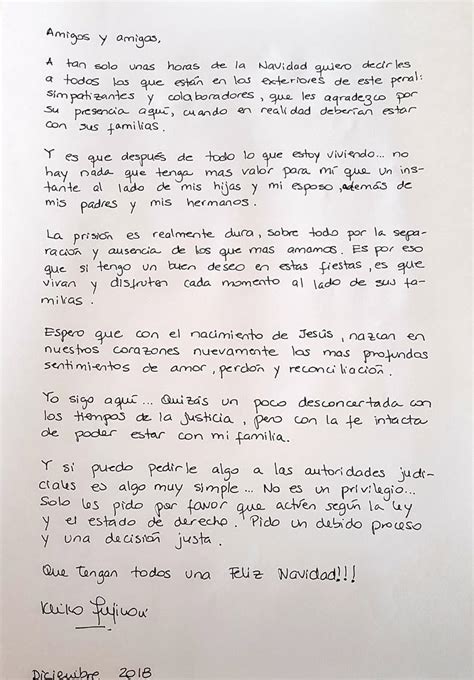 Amigos y amigas,
A tan solo unas horas de la Navidad quiero decirles
a todos los que están en los exteriores de este penal:
simpatizantes y colaboradores, que les agradezco por
su presencia aquí, cuando en realidad deberían estar
con sus familias.
Y es que después de todo lo que estoy viviendo... no
hay nada que tenga mas valor para mí que un ins-
tante al lado de mis hijas y mi esposo, además de
mis padres y mis hermanos.
La prisión es realmente dura, sobre todo por la sepa-
ración y ausencia de los que mas amamos. Es por eso
que si tengo un buen deseo en estas fiestas, es que
vivan y disfruten cada momento al lado de sus fa-
milias.
Espero que con el nacimiento de Jesús, nazcan en
nuestros corazones nuevamente los mas profundos
sentimientos de amor, perdón y reconciliación.
Yo sigo aquí... Quizás un poco desconcertada con
los tiempos de la justicia, pero con la fe intacta
de poder estar con mi familia.
Y si puedo pedirle algo a las autoridades judi-
ciales es algo muy simple... No es un privilegio...
Solo les pido por favor que actúen según la ley
y el estado de derecho. Pido un debido proceso
y una decisión justa.
Que tengan todos una Feliz Navidad!!!
Keiko Fujimori
Diciembre 2018